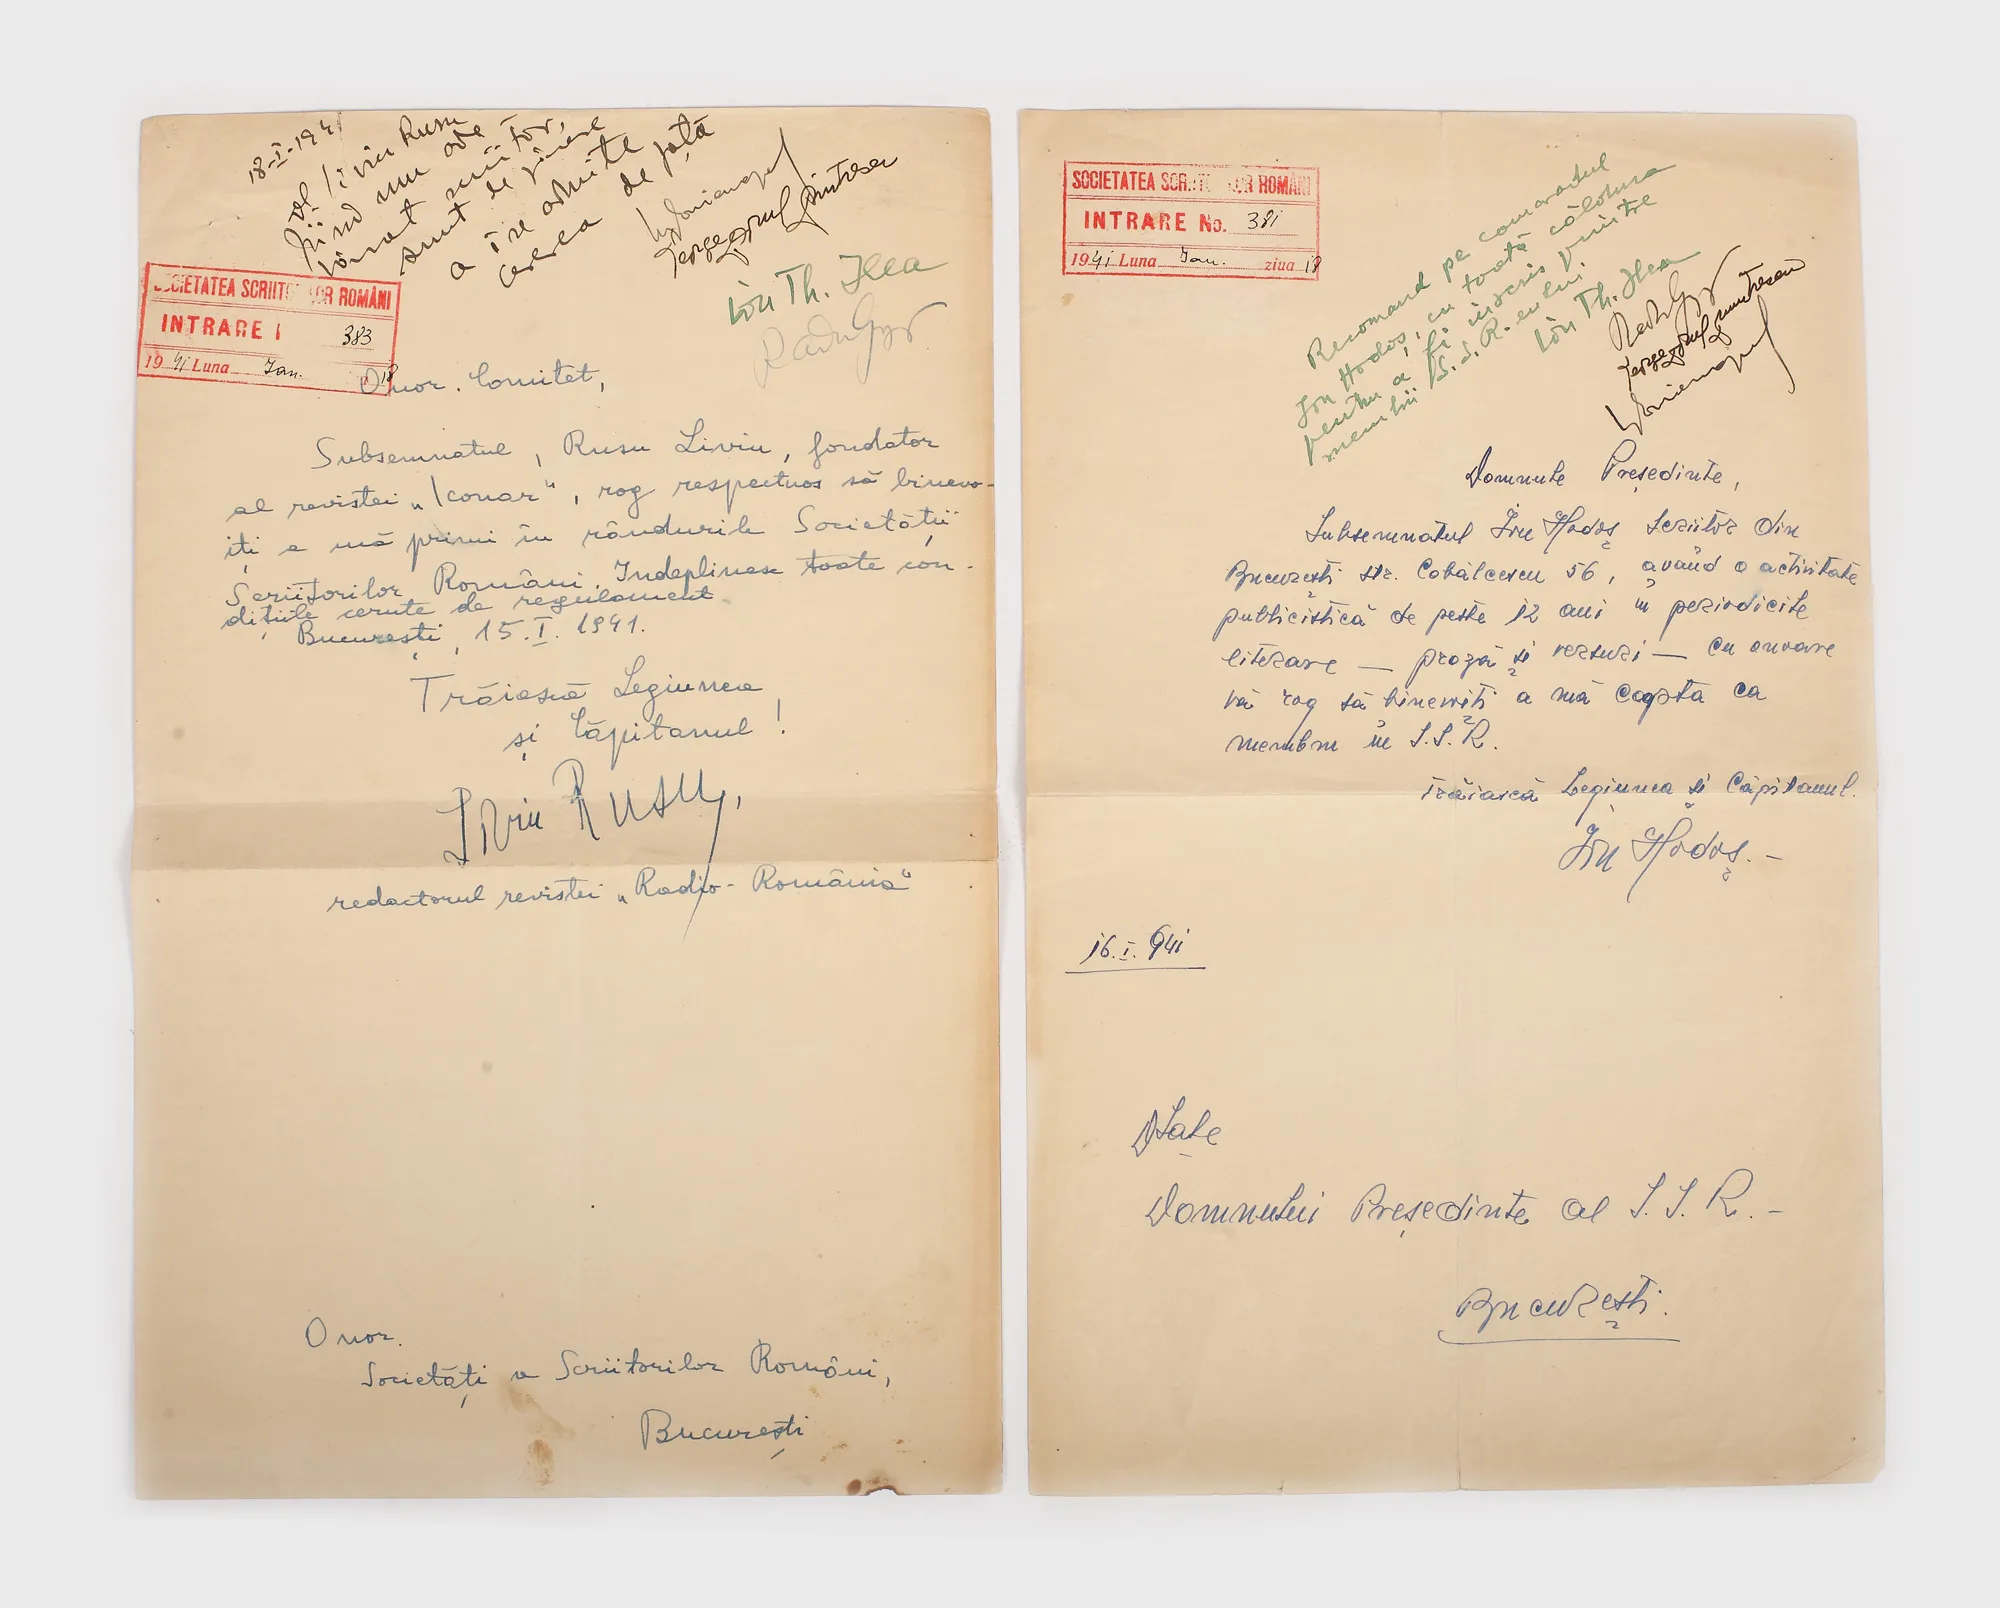 18-I-1941
Dl Liviu Rusu
fiind un ade
vărat scriitor,
sunt de părere
a i se admite
cererea de față
Ion Th. Ilea
Radu Gyr
SOCIETATEA SCRIITORILOR ROMÂNI
INTRARE 383
1941 Luna Ian. 18
Onor. Comitet,
Subsemnatul, Rusu Liviu, fondator
al revistei „Iconar“, rog respectuos să binevo-
iți a mă primi în rândurile Societății
Scriitorilor Români. Indeplinesc toate con-
dițiile cerute de regulament
București, 15.I.1941.
Trăiască Legiunea
și Căpitanul!
Liviu Rusu,
redactorul revistei „Radio-România“
Onor.
Societăți a Scriitorilor Români,
București
SOCIETATEA SCRIITORILOR ROMÂNI
INTRARE No. 381
1941 Luna Ian. ziua 18
Recomand pe camaradul
Ion Hodoș, cu toată căldura
pentru a fi înscris printre
membrii S.S.R.-ului.
Ion Th. Ilea
Radu Gyr
Domnule Președinte,
Subsemnatul Ion Hodoș scriitor din
București str. Cobălcescu 56, având o activitate
publicistică de peste 12 ani în periodicile
literare — proză și versuri — cu onoare
vă rog să binevoiți a mă accepta ca
membru în S.S.R.
Trăiască Legiunea și Căpitanul.
Ion Hodoș.-
16.I.941
Domnului Președinte al S.S.R.-
București.